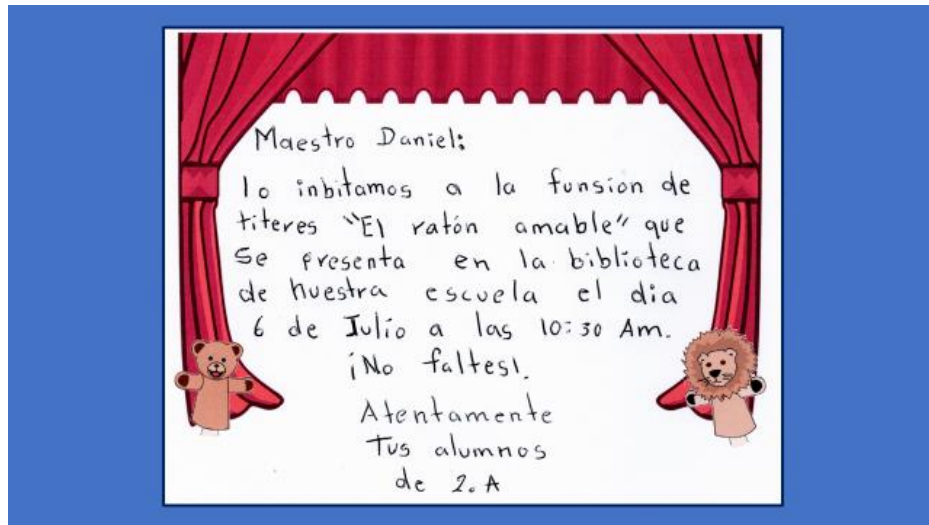 Maestro Daniel:
lo inbitamos a la funsion de
titeres "El ratón amable" que
se presenta en la biblioteca
de nuestra escuela el dia
6 de Julio a las 10:30 Am.
¡No faltes!.
Atentamente
Tus alumnos
de 2. A